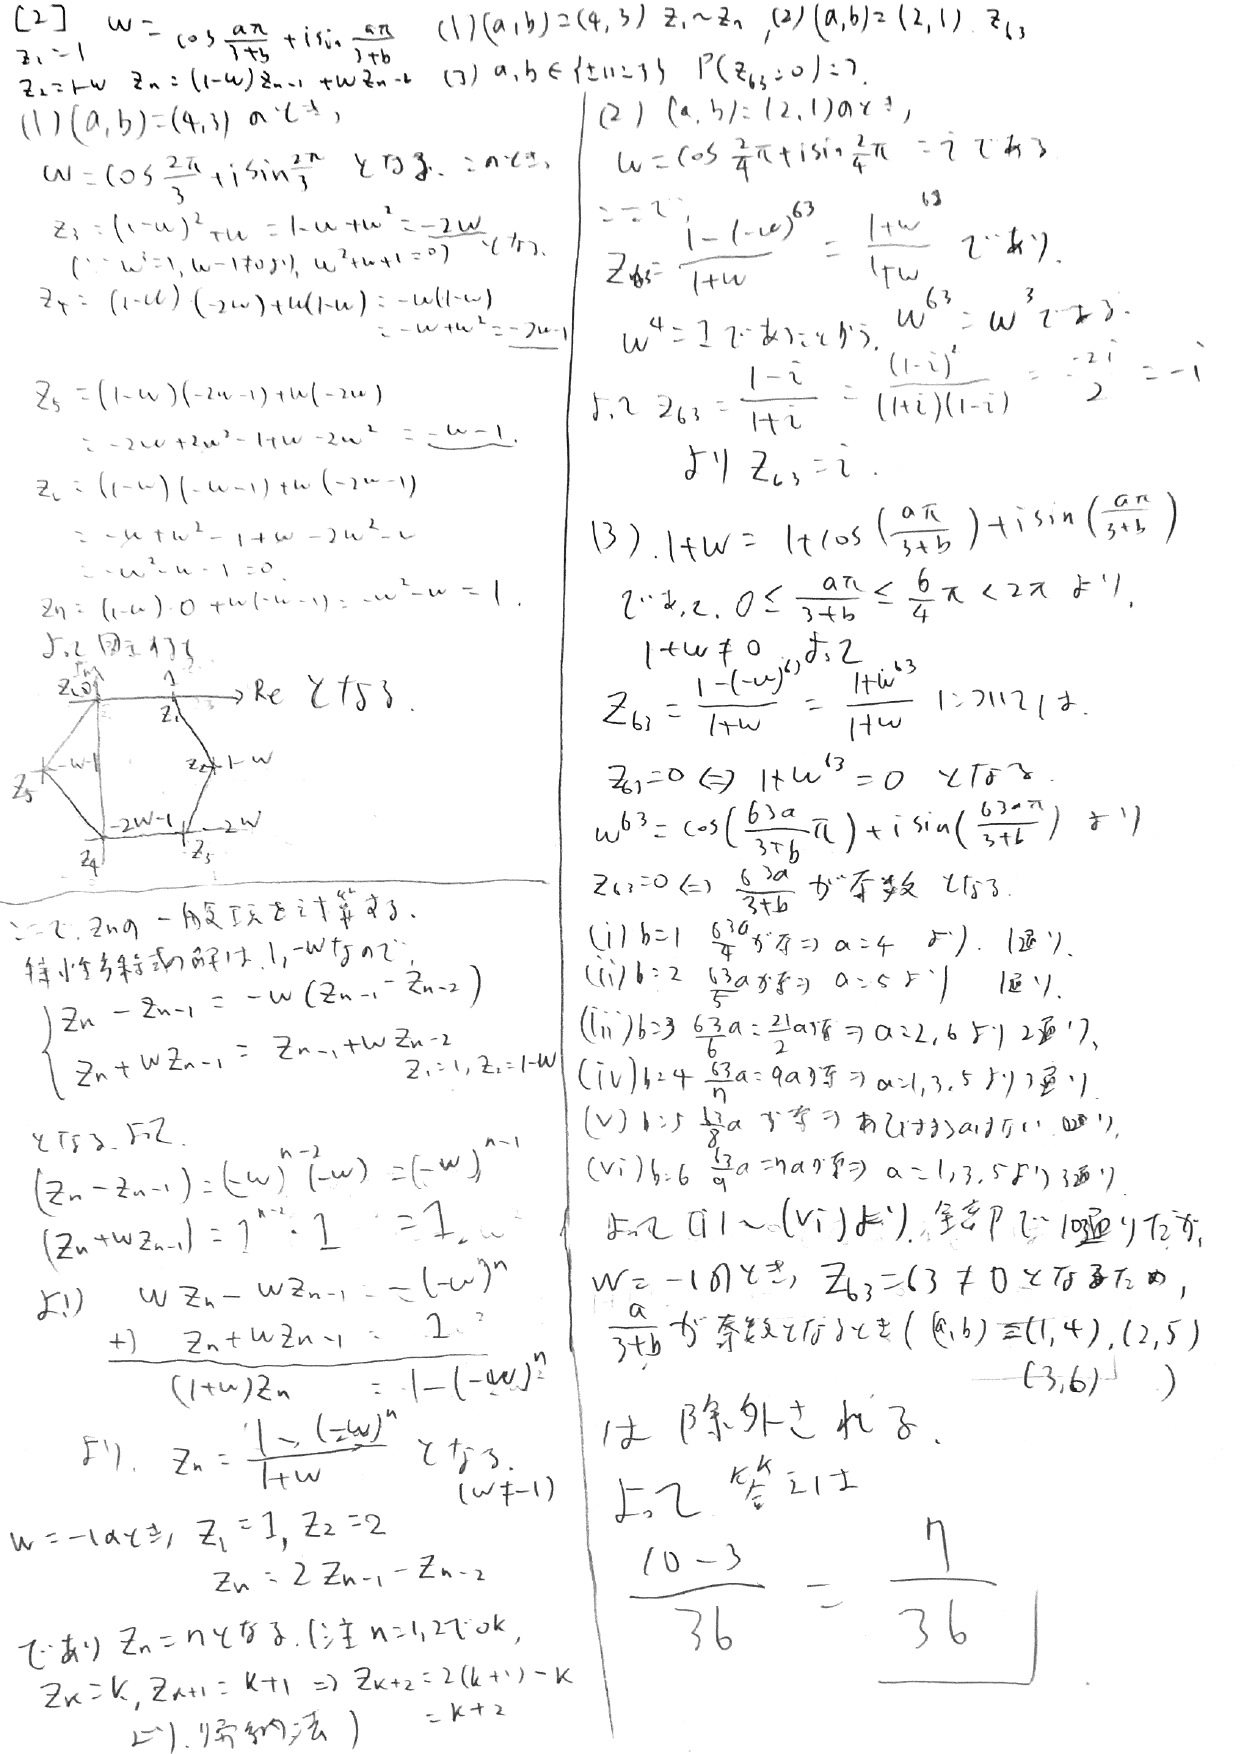 [2] w = cos aπ/3+b + i sin aπ/3+b (1) (a,b)=(4,3) z₁~zₙ, (2) (a,b)=(2,1) z₆₃
z₁=1
z₂=1-w zₙ=(1-w)zₙ₋₁+wzₙ₋₂ (3) P(z₆₃=0)=?
(1) (a,b)=(4,3)のとき,
w=cos 2π/3 + i sin 2π/3 となる. このとき,
z₃=(1-w)²+w=1-w+w²=-2w となる.
(∵ w³=1, w-1≠0より, w²+w+1=0)
z₄=(1-w)・(-2w)+w(1-w)=-w(1-w)
=-w+w²=-2w-1
z₅=(1-w)(-2w-1)+w(-2w)
=-2w+2w²-1+w-2w²=-w-1.
z₆=(1-w)(-w-1)+w(-2w-1)
=-w+w²-1+w-2w²-w
=-w²-w-1=0.
z₇=(1-w)・0+w(-w-1)=-w²-w=1.
よって図示すると
z₆ 0 1 Re となる.
z₁
z₅ -w-1 z₂ 1-w
-2w-1 -2w
z₄ z₃
ここで, zₙの一般項を計算する.
特性多程式の解は, 1, -wなので,
zₙ-zₙ₋₁=-w(zₙ₋₁-zₙ₋₂)
zₙ+wzₙ₋₁=zₙ₋₁+wzₙ₋₂
z₁=1, z₂=1-w
となる. よって.
(zₙ-zₙ₋₁)=(-w)ⁿ⁻²(-w)=(-w)ⁿ⁻¹
(zₙ+wzₙ₋₁)=1ⁿ⁻²・1=1.
より wzₙ-wzₙ₋₁=-(-w)ⁿ
+) zₙ+wzₙ₋₁=1.
(1+w)zₙ=1-(-w)ⁿ
より. zₙ=1-(-w)ⁿ/1+w となる.
(w≠-1)
w=-1のとき, z₁=1, z₂=2
zₙ=2zₙ₋₁-zₙ₋₂
であり zₙ=nとなる. (注 n=1,2でOK,
zₖ=k, zₖ₊₁=k+1 ⇒ zₖ₊₂=2(k+1)-k
=k+2
より. 帰納法)
(2) (a,b)=(2,1)のとき,
w=cos 2/4 π+i sin 2/4 π =i である
ここで,
z₆₃=1-(-w)⁶³/1+w=1+w⁶³/1+w であり.
w⁴=1であることから, w⁶³=w³である.
よって z₆₃=1-i/1+i=(1-i)²/(1+i)(1-i)=-2i/2=-i
より z₆₃=i.
(3). 1+w=1+cos(aπ/3+b)+i sin(aπ/3+b)
であって, 0≤aπ/3+b≤6/4 π<2π より,
1+w≠0 よって
z₆₃=1-(-w)⁶³/1+w=1+w⁶³/1+w については.
z₆₃=0⇔1+w⁶³=0 となる.
w⁶³=cos(63a/3+b π)+i sin(63aπ/3+b) より
z₆₃=0⇔63a/3+b が奇数 となる.
(i) b=1 63a/4が奇⇒a=4 より. 1通り.
(ii) b=2 63/5 aが奇⇒a=5より 1通り.
(iii) b=3 63/6 a=21/2 aが奇⇒a=2,6より2通り,
(iv) b=4 63/7 a=9aが奇⇒a=1,3,5より3通り.
(v) b=5 63/8 aが奇⇒あてはまるaはない. 0通り.
(vi) b=6 63/9 a=7aが奇⇒a=1,3,5より3通り.
よって(i)~(vi)より, 全部で10通りだが,
w=-1のとき, z₆₃=63≠0となるため,
a/3+bが奇数となるとき((a,b)=(1,4),(2,5)
(3,6))
は除外される.
よって答えは
10-3/36=7/36